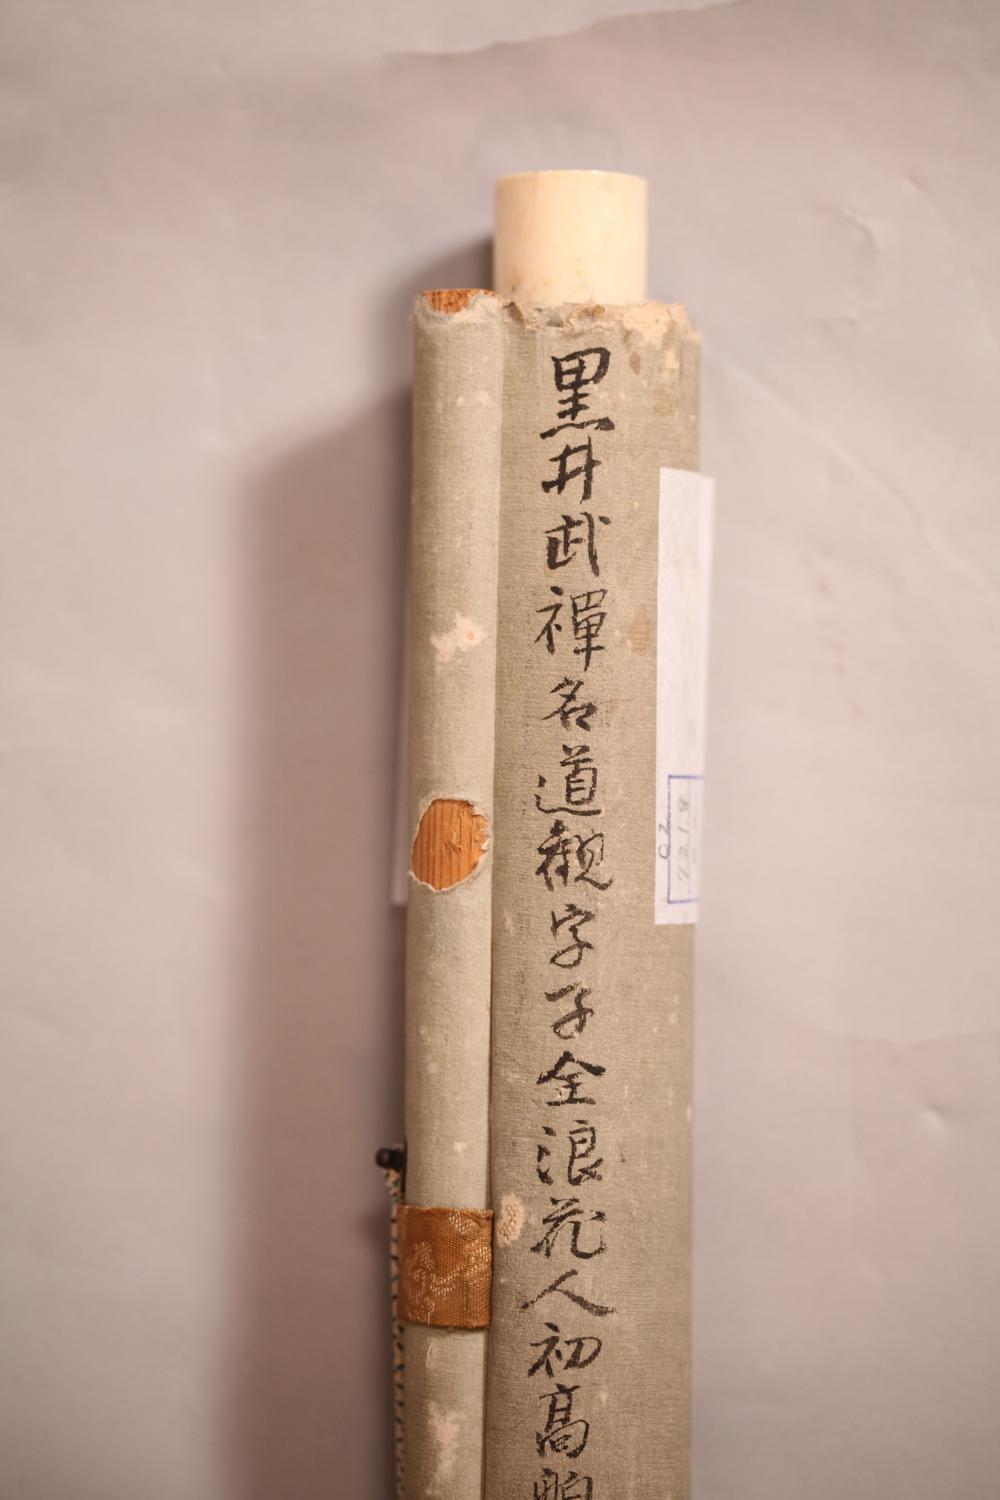 黒井武禅名道観字子全浪花人初高